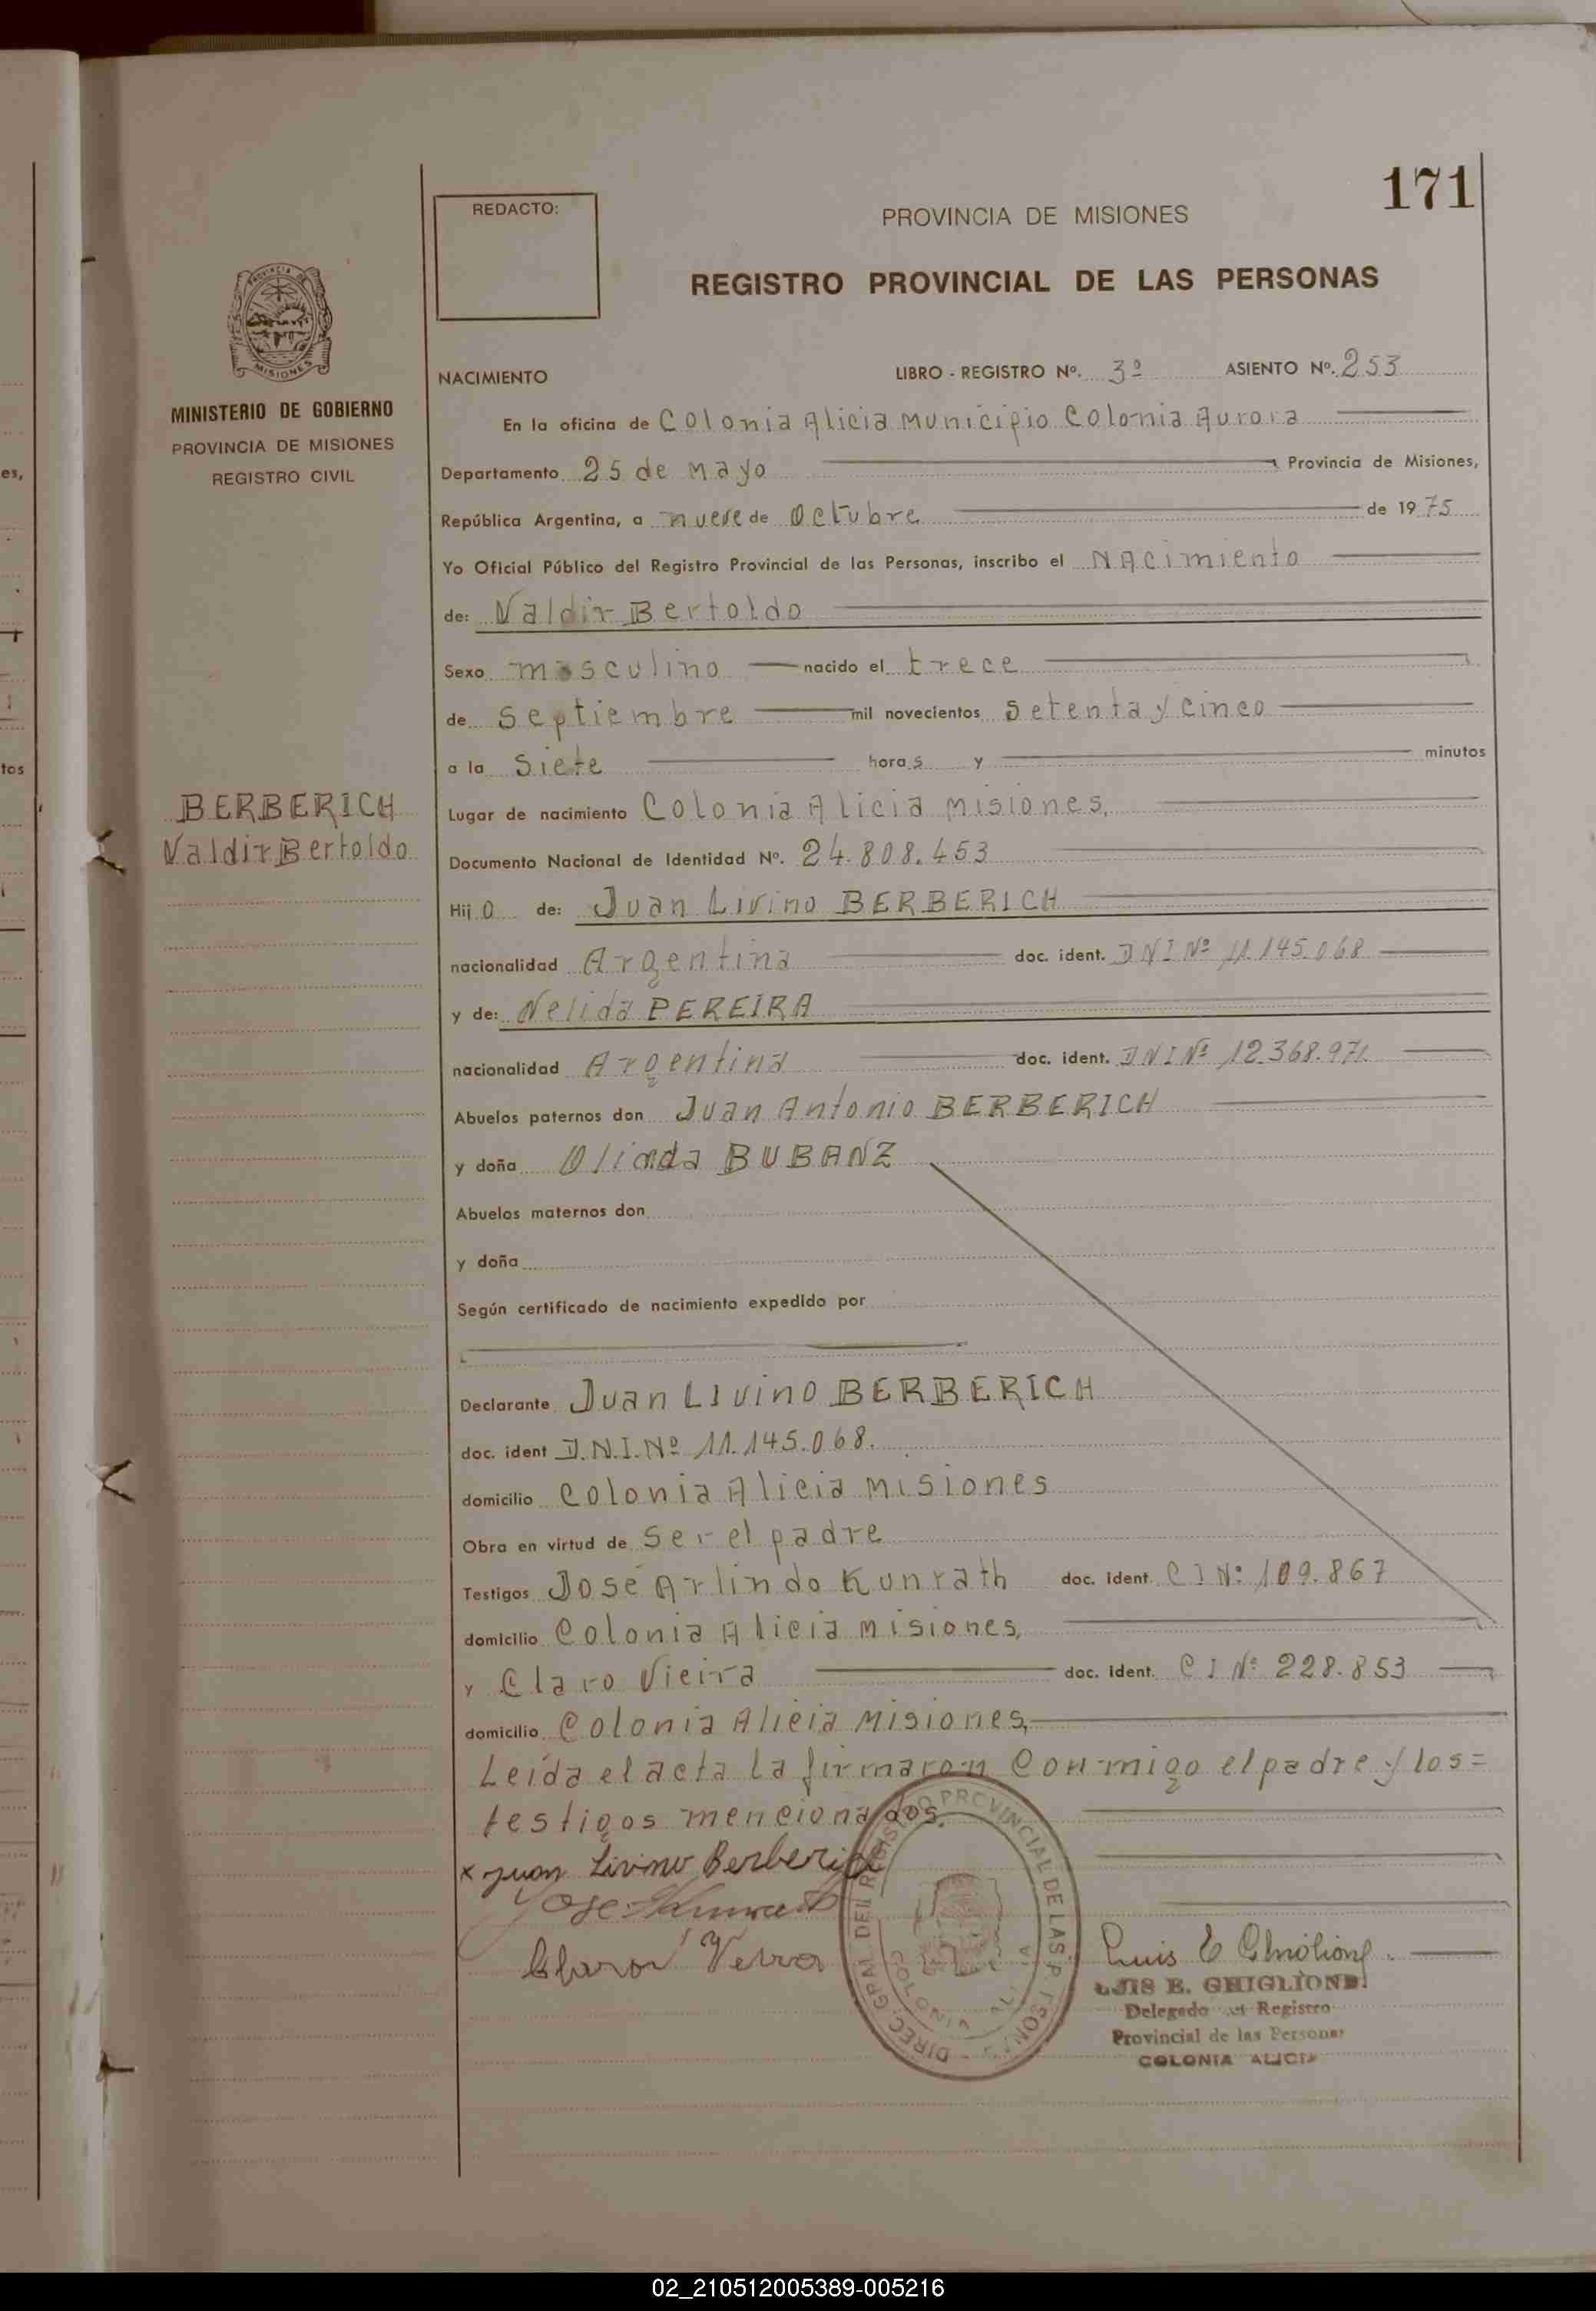 171
REDACTO:
PROVINCIA DE MISIONES
REGISTRO PROVINCIAL DE LAS PERSONAS
MISIONES
MINISTERIO DE GOBIERNO
PROVINCIA DE MISIONES
REGISTRO CIVIL
NACIMIENTO LIBRO - REGISTRO Nº. 3º ASIENTO Nº. 253
En la oficina de Colonia Alicia Municipio Colonia Aurora
Departamento 25 de Mayo Provincia de Misiones,
República Argentina, a nueve de Octubre de 1975
Yo Oficial Público del Registro Provincial de las Personas, inscribo el NAcimiento
de: Valdir Bertoldo
Sexo masculino nacido el trece
de septiembre mil novecientos setenta y cinco
a la siete horas y minutos
BERBERICH
Valdir Bertoldo
Lugar de nacimiento Colonia Alicia Misiones,
Documento Nacional de Identidad Nº. 24.808.453
Hijo de: Juan Livino BERBERICH
nacionalidad Argentina doc. ident. DNI Nº 11.145.068
y de: Nelida PEREIRA
nacionalidad Argentina doc. ident. DNI Nº 12.368.971
Abuelos paternos don Juan Antonio BERBERICH
y doña Olinda BUBANZ
Abuelos maternos don
y doña
Según certificado de nacimiento expedido por
Declarante Juan Livino BERBERICH
doc. ident D.N.I. Nº 11.145.068.
domicilio Colonia Alicia Misiones
Obra en virtud de Ser el padre
Testigos José Arlindo Kunrath doc. ident. CI Nº 109.867
domicilio Colonia Alicia Misiones,
y Claro Vieira doc. ident. CI Nº 228.853
domicilio Colonia Alicia Misiones,
Leída el acta la firmaron Conmigo el padre y los=
testigos mencionados.
x Juan Livino Berberich
Jose Kunrath
DIREC. GRAL. DEL REGISTRO PROVINCIAL DE LAS PERSONAS
COLONIA ALICIA
Luis E Ghiglione
LUIS E. GHIGLIONE
Delegado del Registro
Provincial de las Personas
COLONIA ALICIA
es,
tos
02_210512005389-005216